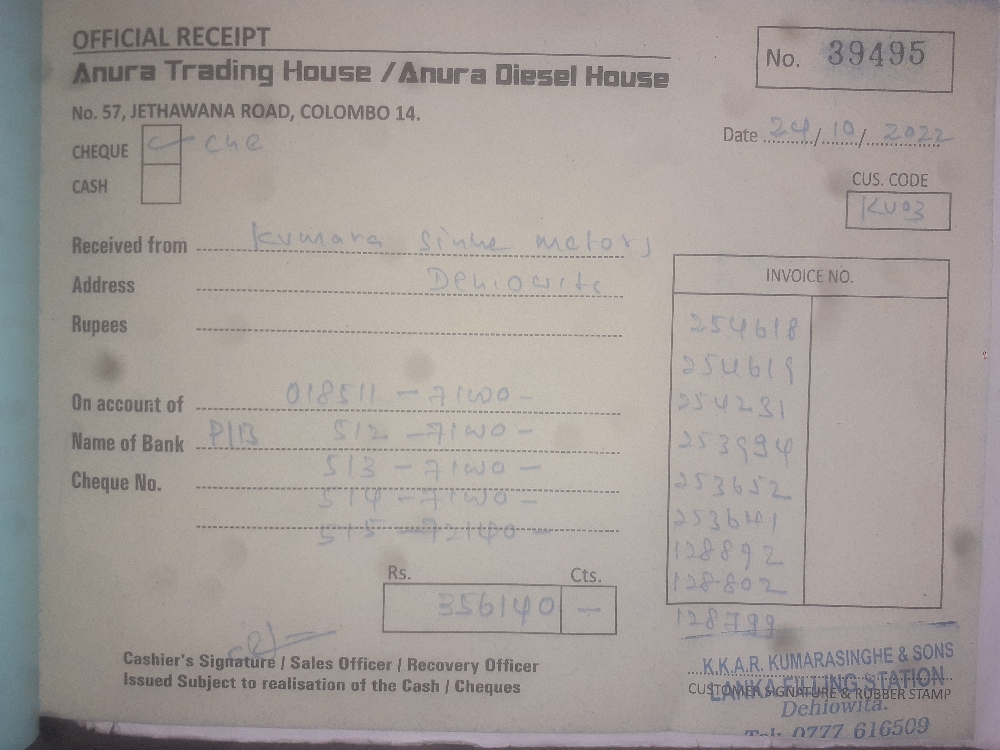 OFFICIAL RECEIPT
Anura Trading House / Anura Diesel House
No. 39495
No. 57, JETHAWANA ROAD, COLOMBO 14.
Date 24/10/2022
CHEQUE che
CASH
CUS. CODE
KU03
Received from Kumara Sinhe motors
Address Dehiowita
Rupees
INVOICE NO.
254618
254619
254231
253994
253652
253641
128892
128802
128799
On account of 018511 - 71000 -
Name of Bank P/B 512 - 71000 -
513 - 71000 -
Cheque No.
514 - 71000 -
515 - 72140 -
Rs. Cts.
356140 —
Cashier's Signature / Sales Officer / Recovery Officer
Issued Subject to realisation of the Cash / Cheques
K.K.A.R. KUMARASINGHE & SONS
LANKA FILLING STATION
CUSTOMER SIGNATURE & RUBBER STAMP
Dehiowita.
Tel: 0777 616509